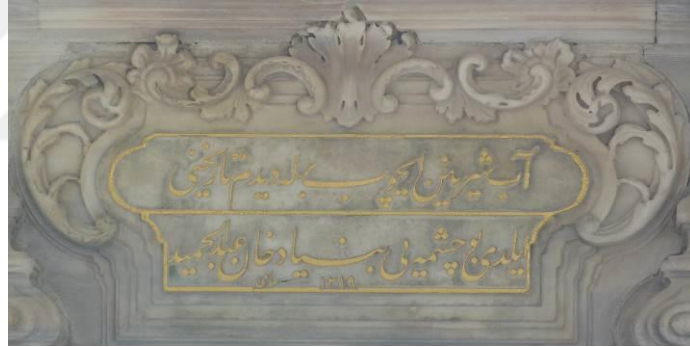 آب شیرین ایچوب بویله دیدم تاریخنی
ایلدی بو چشمه یی بنیاد خان عبدالحمید